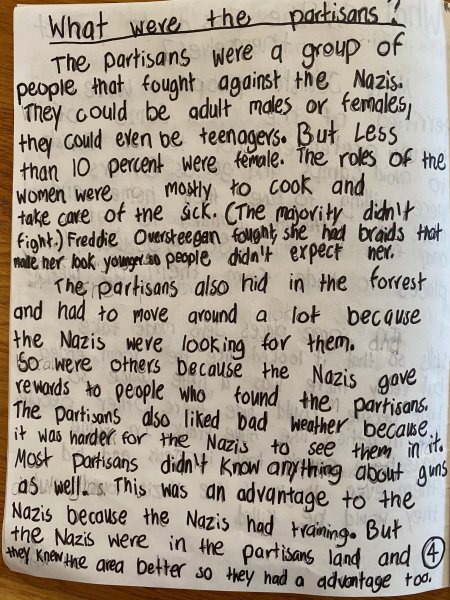 What were the partisans?
The partisans were a group of
people that fought against the Nazis.
They could be adult males or females,
they could even be teenagers. But Less
than 10 percent were female. The roles of the
women were mostly to cook and
take care of the sick. (The majority didn't
fight.) Freddie Oversteegan fought, she had braids that
made her look younger so people didn't expect her.
The partisans also hid in the forrest
and had to move around a lot because
the Nazis were looking for them.
So were others because the Nazis gave
rewards to people who found the partisans.
The partisans also liked bad weather because
it was harder for the Nazis to see them in it.
Most partisans didn't know anything about guns
as well. This was an advantage to the
Nazis because the Nazis had training. But
the Nazis were in the partisans land and
they knew the area better so they had a advantage too.
4